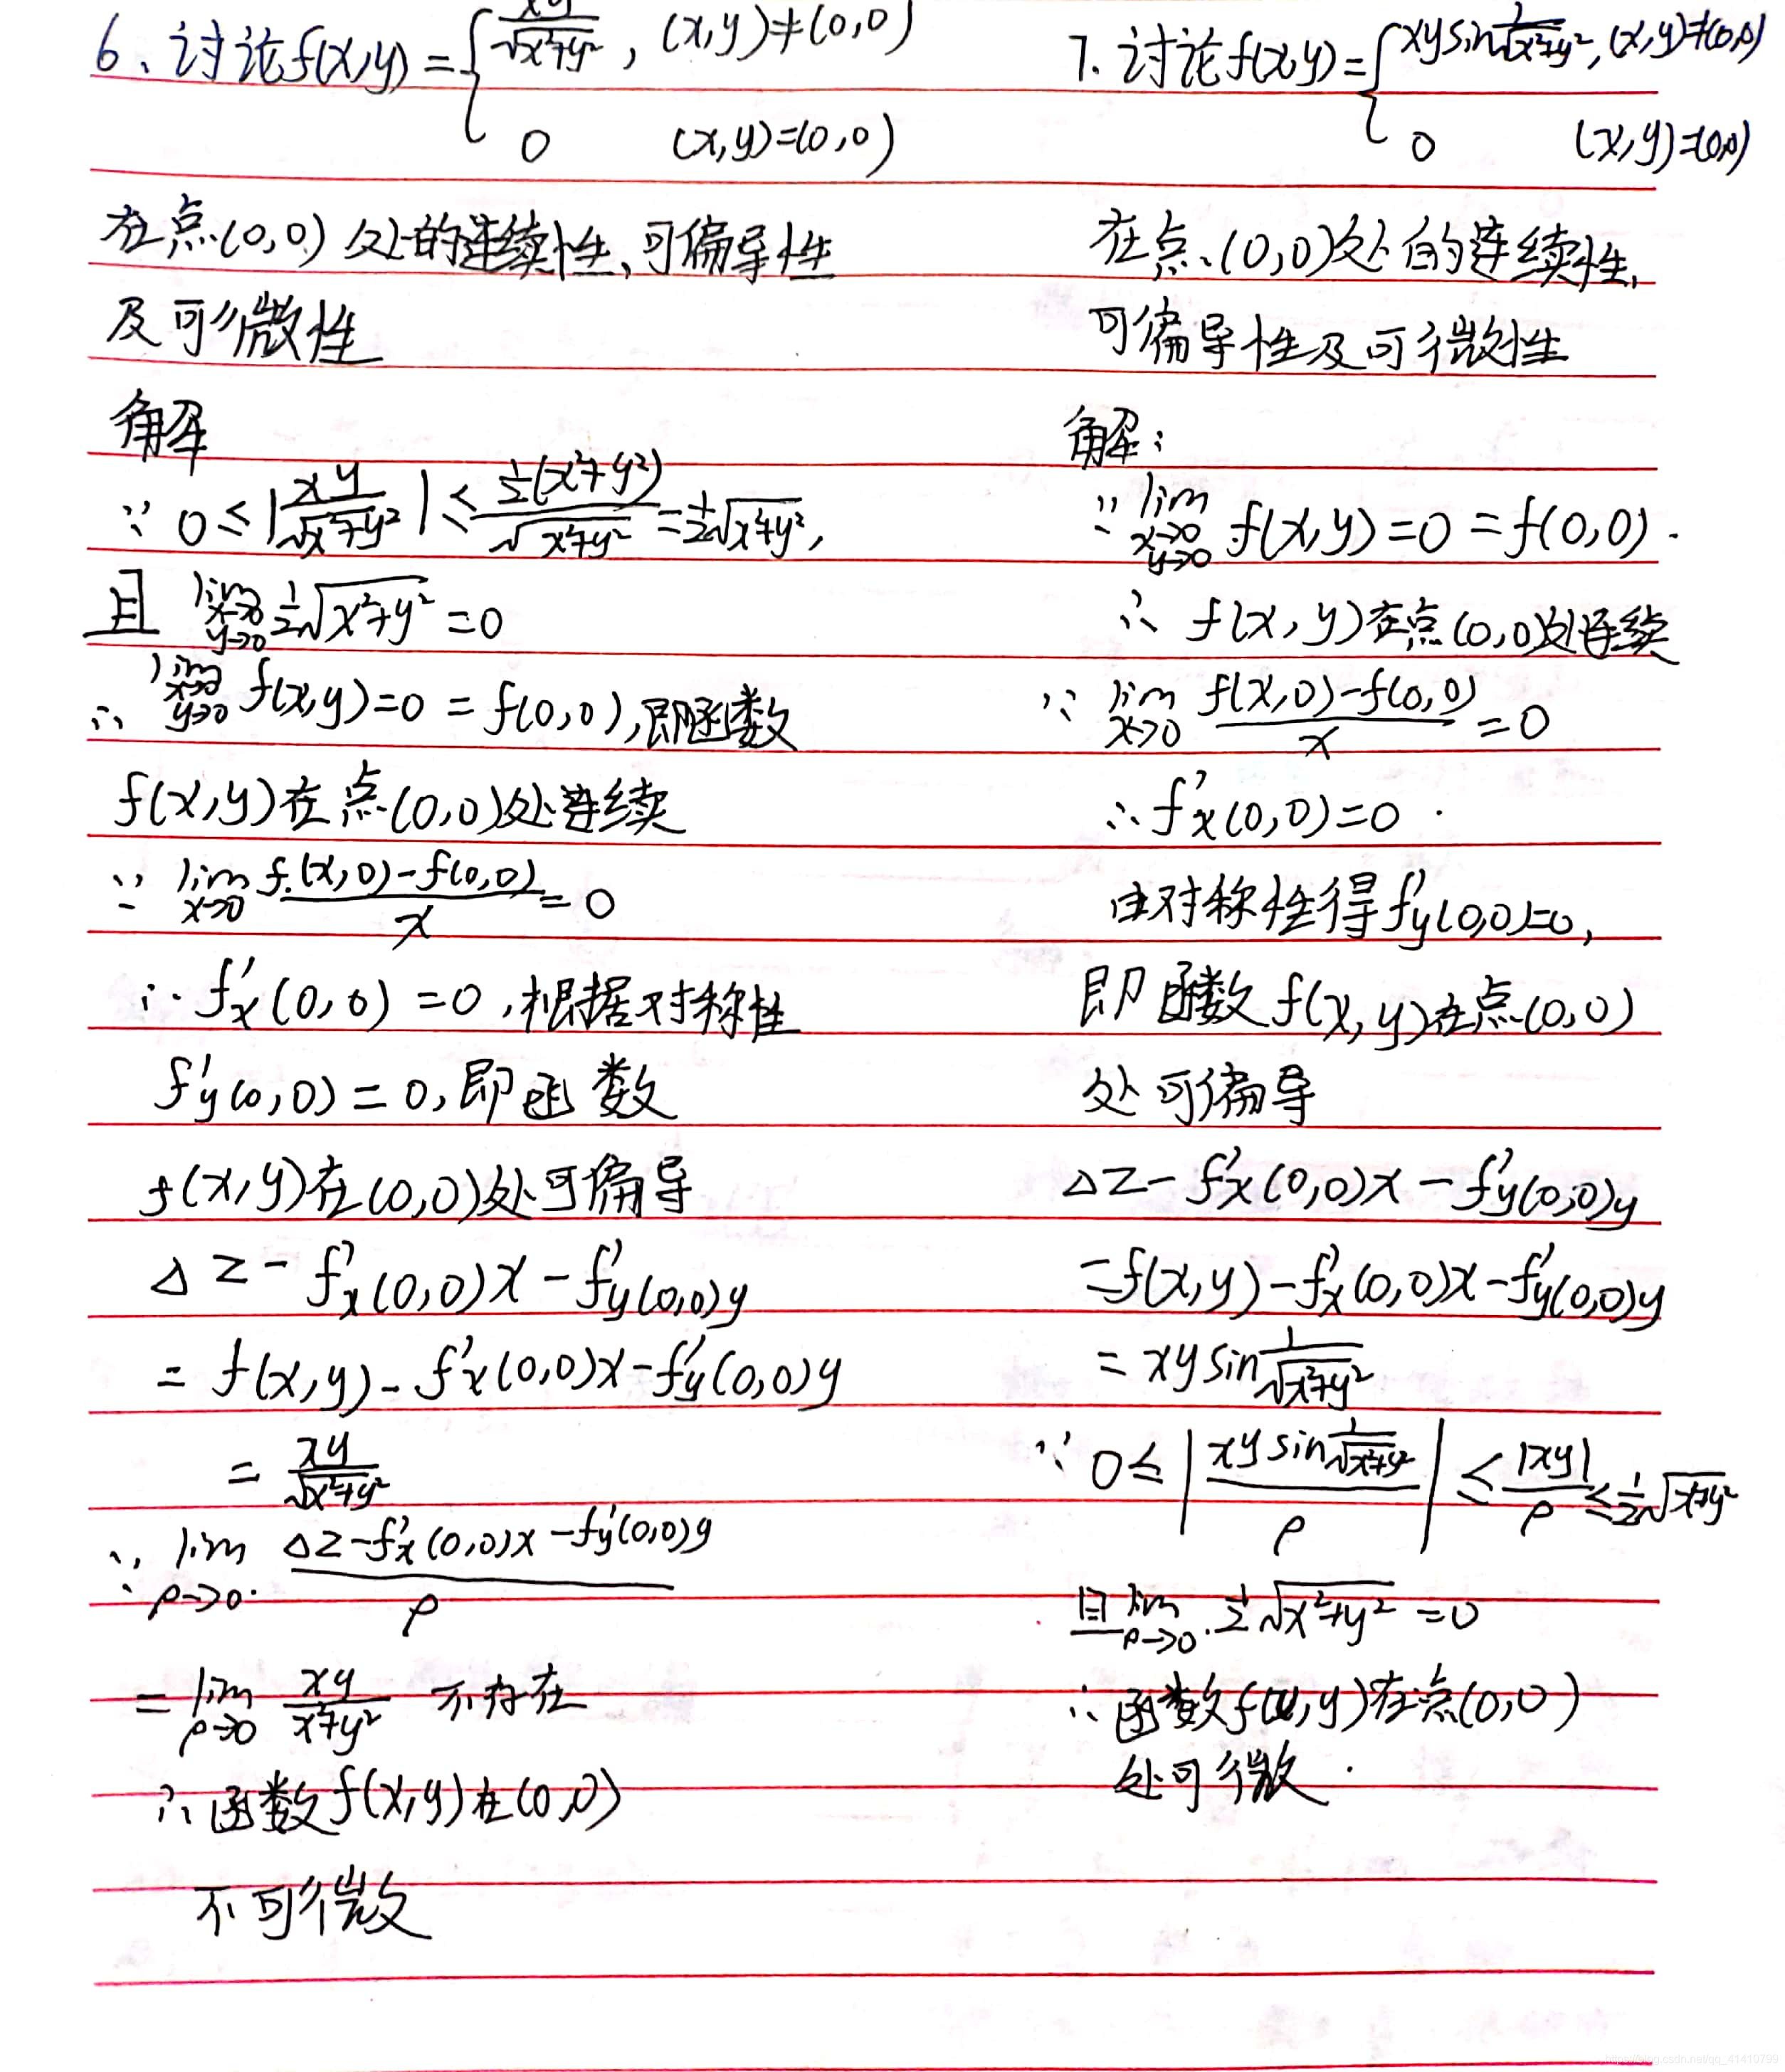 6、讨论f(x,y)={xy/√(x²+y²), (x,y)≠(0,0)
0 (x,y)=(0,0)
在点(0,0)处的连续性、可偏导性
及可微性
解
∵ 0≤|xy/√(x²+y²)|≤½(x²+y²)/√(x²+y²)=½√(x²+y²),
且 lim x→0 y→0 ½√(x²+y²)=0
∴ lim x→0 y→0 f(x,y)=0=f(0,0),即函数
f(x,y)在点(0,0)处连续
∵ lim x→0 (f(x,0)-f(0,0))/x=0
∴ f'x(0,0)=0,根据对称性
f'y(0,0)=0,即函数
f(x,y)在(0,0)处可偏导
△z-f'x(0,0)x-f'y(0,0)y
=f(x,y)-f'x(0,0)x-f'y(0,0)y
=xy/√(x²+y²)
∵ lim ρ→0 (△z-f'x(0,0)x-f'y(0,0)y)/ρ
=lim ρ→0 xy/(x²+y²) 不存在
∴函数f(x,y)在(0,0)
不可微
7.讨论f(x,y)={xysin1/√(x²+y²),(x,y)≠(0,0)
0 (x,y)=(0,0)
在点(0,0)处的连续性,
可偏导性及可微性
解:
∵ lim x→0 y→0 f(x,y)=0=f(0,0).
∴ f(x,y)在点(0,0)处连续
∵ lim x→0 (f(x,0)-f(0,0))/x=0
∴f'x(0,0)=0.
由对称性得f'y(0,0)=0,
即函数f(x,y)在点(0,0)
处可偏导
△z-f'x(0,0)x-f'y(0,0)y
=f(x,y)-f'x(0,0)x-f'y(0,0)y
=xysin1/√(x²+y²)
∵ 0≤|xysin(1/√(x²+y²))/ρ|≤|xy|/ρ≤½√(x²+y²)
且 lim ρ→0 ½√(x²+y²)=0
∴函数f(x,y)在点(0,0)
处可微.